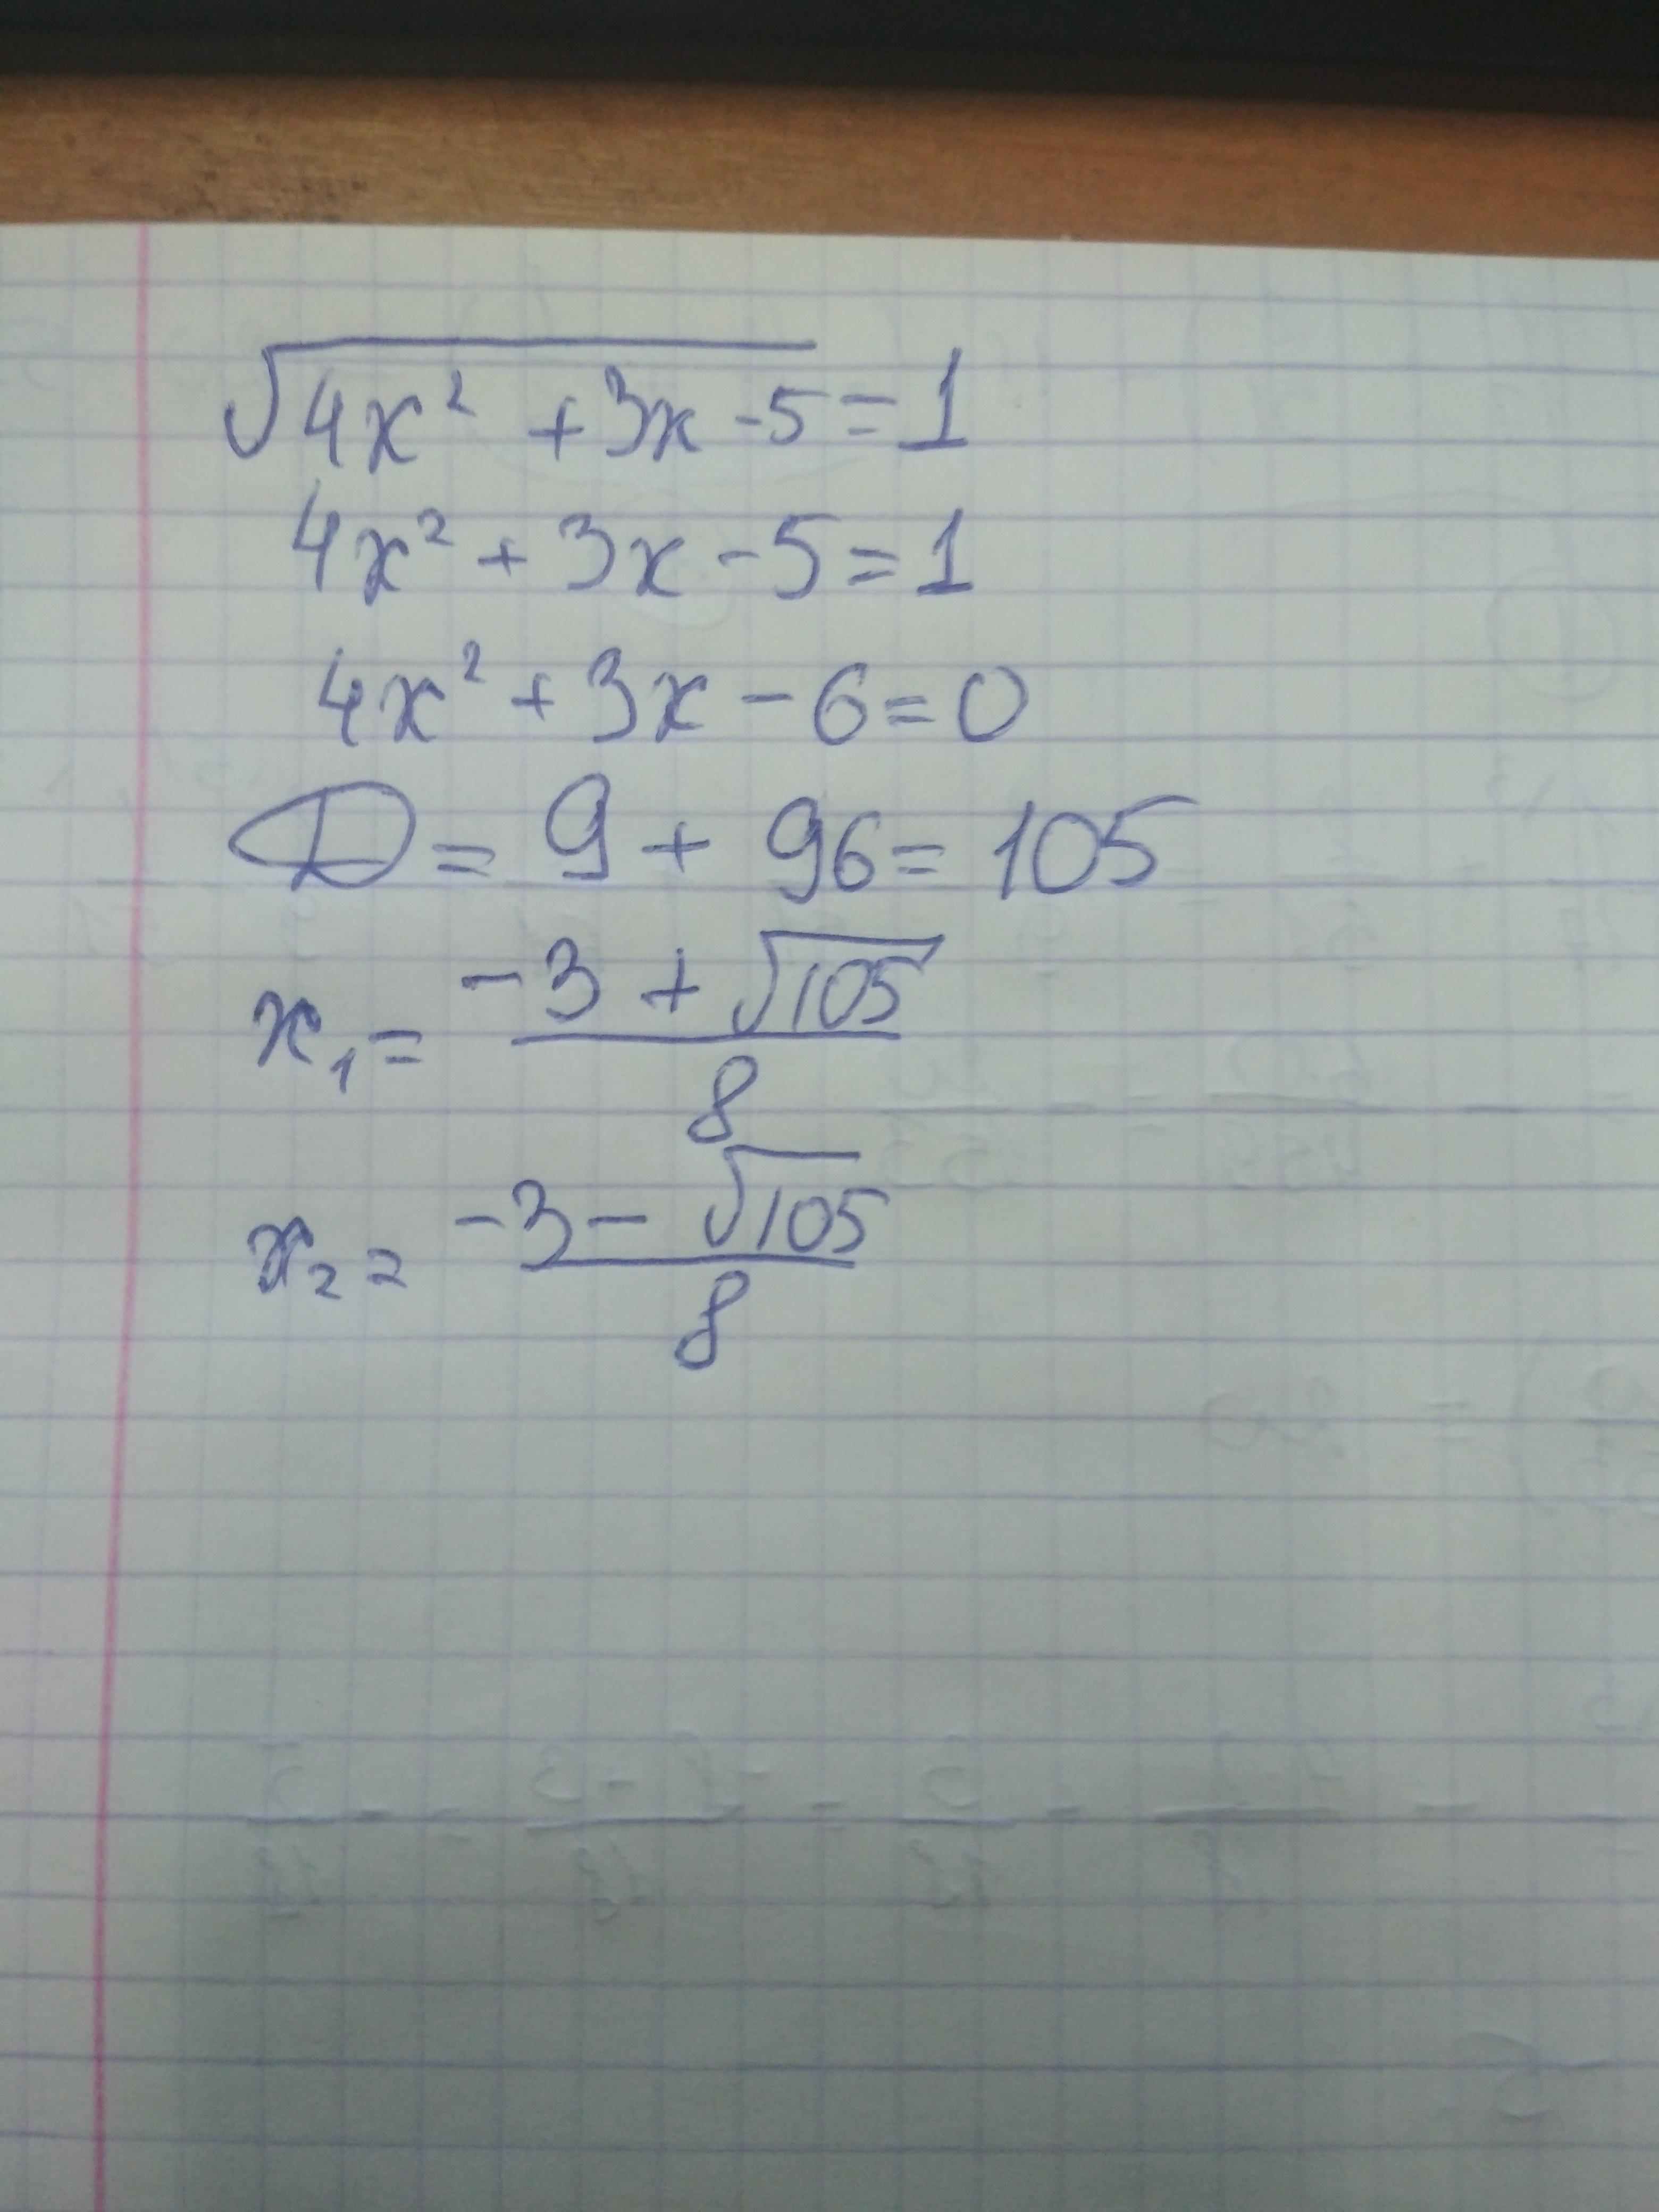 √(4x² + 3x - 5) = 1
4x² + 3x - 5 = 1
4x² + 3x - 6 = 0
D = 9 + 96 = 105
x₁ = (-3 + √105) / 8
x₂ = (-3 - √105) / 8